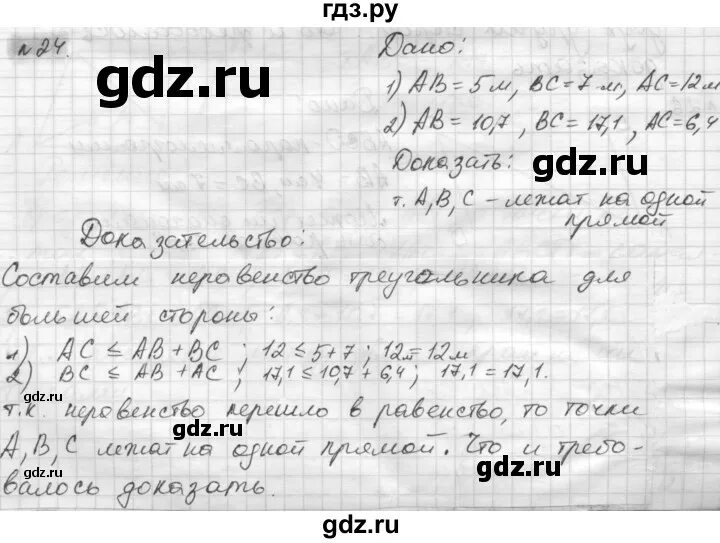 гдз.ру
№24.
Дано:
1) AB = 5 м, BC = 7 м, AC = 12 м
2) AB = 10,7, BC = 17,1, AC = 6,4
Доказать:
т. A, B, C – лежат на одной
прямой
Доказательство:
Составим неравенство треугольника для
большей стороны:
1) AC ≤ AB + BC ; 12 ≤ 5+7 ; 12м = 12м
2) BC ≤ AB + AC ; 17,1 ≤ 10,7 + 6,4 ; 17,1 = 17,1.
т.к. неравенство перешло в равенство, то точки
A, B, C лежат на одной прямой. Что и требо-
валось доказать.
gdz.ru
gdz.ru
gdz.ru
gdz.ru
gdz.ru
gdz.ru